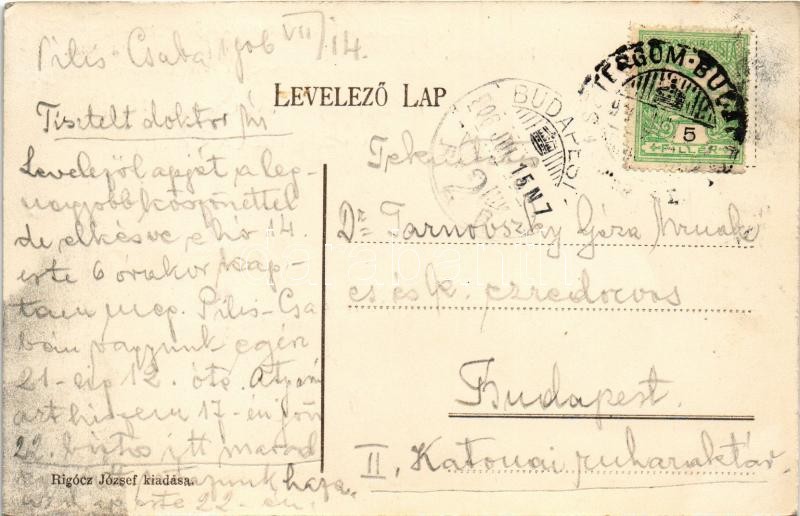 Pilis-Csaba 906 VII/14.
LEVELEZŐ LAP
Tisztelt doktor úr
Levelezőlapját a leg-
nagyobb köszönettel
de elkésve e hó 14.
este 6 órakor kap-
tam meg. Pilis-Csa
bán vagyunk egész
21-éig 12. óta.
azt hiszem 17-én jön
22. itt marad
haza
este 22-én.
Rigócz József kiadása.
ESZTERGOM-BU
BUDAPEST
906 JUL 15 N7
5
FILLÉR
Tekintetes
Dr Tarnovszky Géza úrnak
cs és k. ezredorvos
Budapest.
II. Katonai ruharaktár.